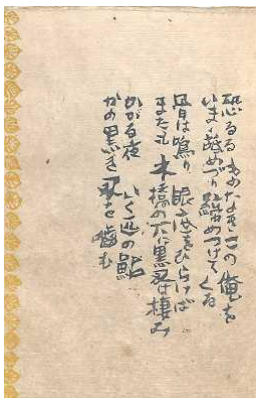 恐るるものなきこの俺を
いまも舐めづり締めつけてくる
骨は鳴り 眼をひらけば
またも木橋の下に黒みは棲み
かかる夜 いく匹の
かの黒き を噛む